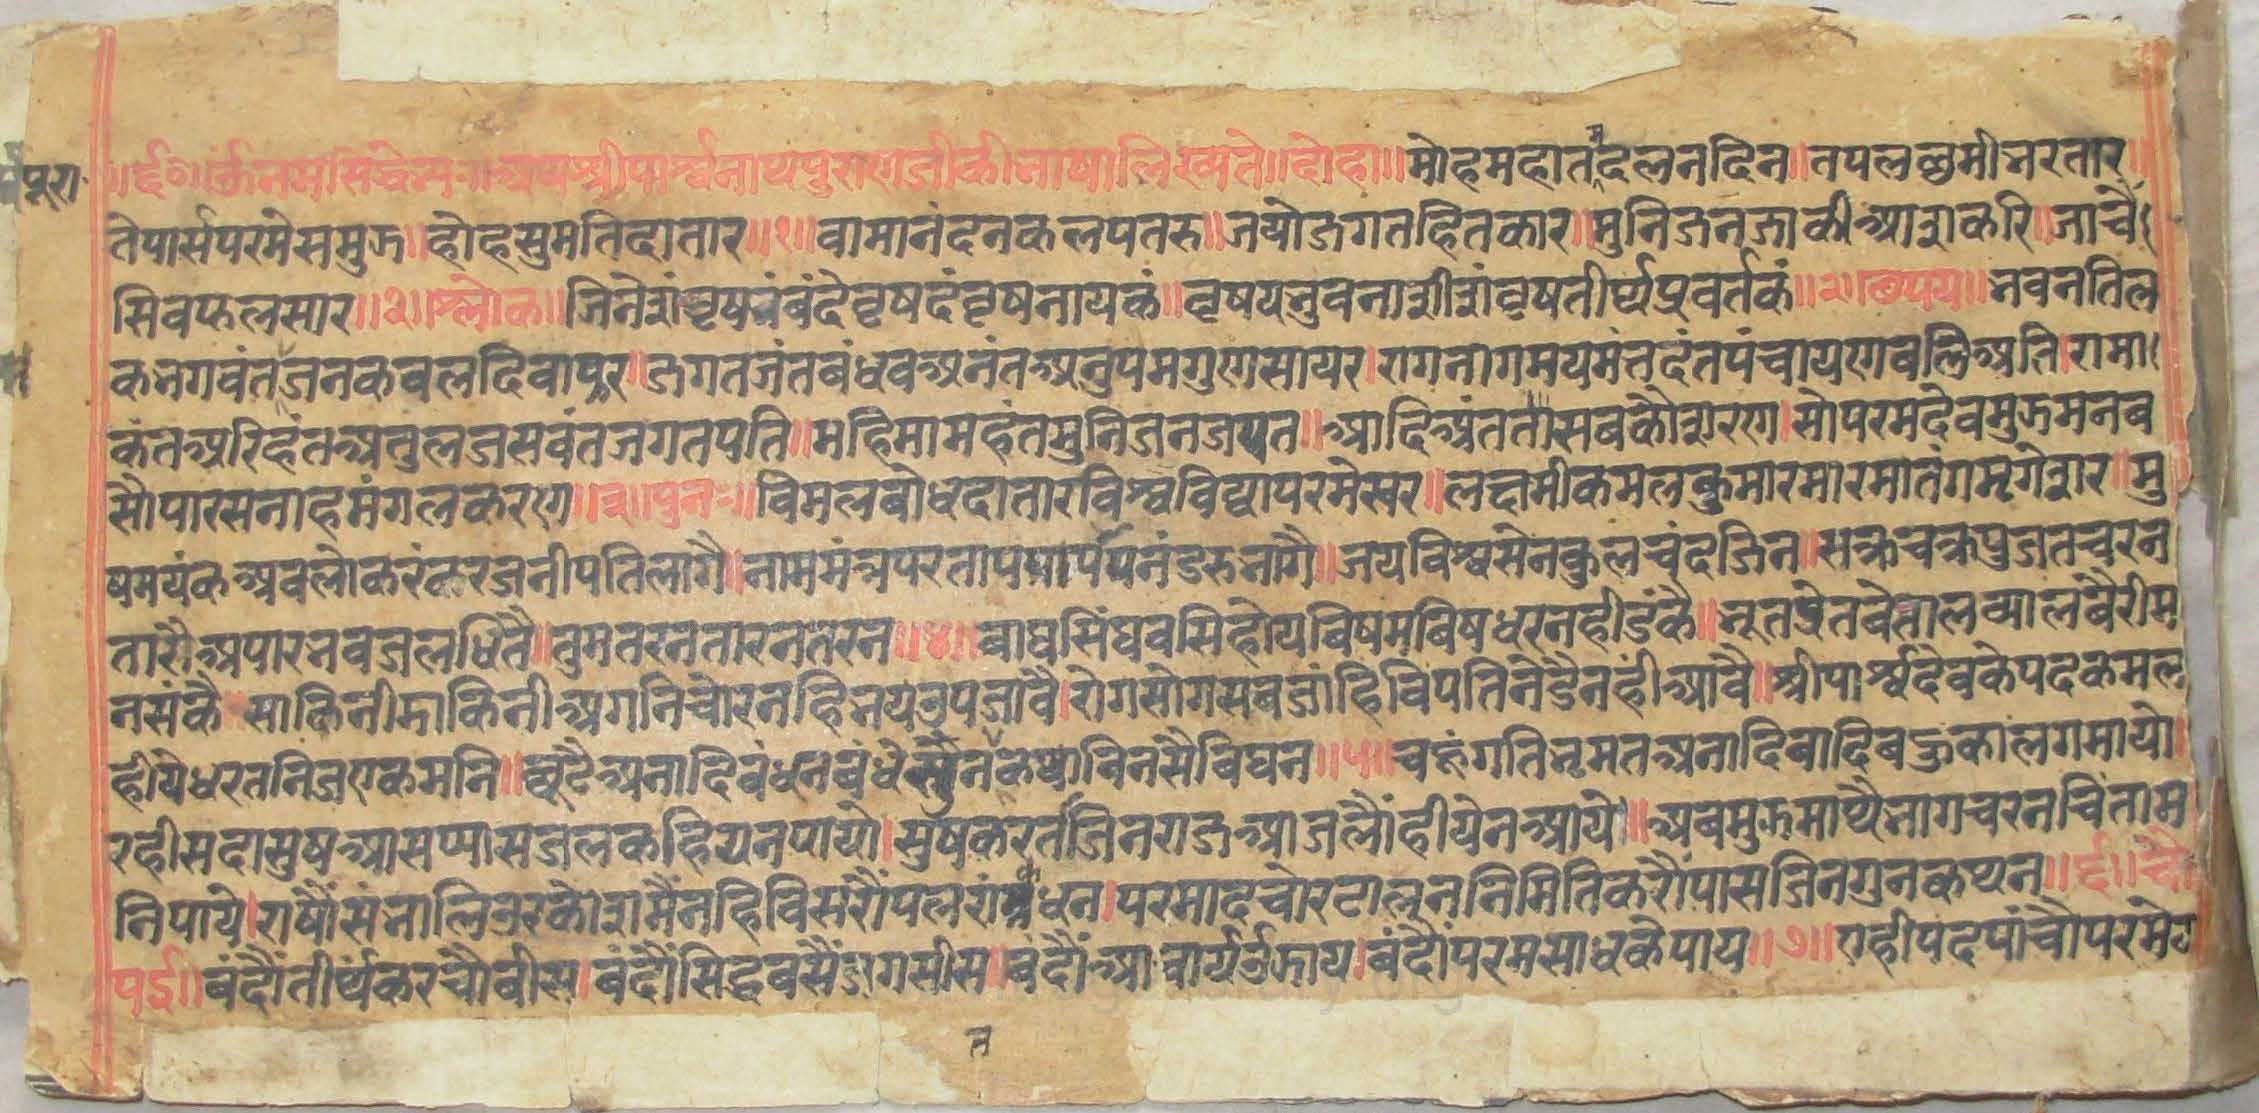 ॥६०॥ॐनमसिद्धेभ्यः॥अथश्रीपार्श्वनाथपुराणजीकीभाषालिख्यते॥दोहा॥मोहमहातमदलनदिन॥तपलछमीभरतार॥
तेपार्सपरमेसमुझ॥होहसुमतिदातार॥१॥वामानंदनकलपतरु॥जयोजगतहितकार॥मुनिजनजाकीआशकरि॥जाचै
सिवफलसार॥२॥श्लोक॥जिनेशंवृषभंवंदेवृषदंवृषनायकं॥वृषयभुवनाशीशंवृषतीर्थप्रवर्तकं॥२॥छप्पय॥भवनतिल
कभगवंतजनकवलदिवापुर॥जगतजंतबंधवअनंतअनुपमगुणसायर।रागनागमयमंतदंतपंचायणवलिअति।रामा
कंतअरिहंतअतुलजसवंतजगतपति॥महिमामहंतमुनिजनजपत॥आदिअंततासबकौशरण।सोपरमदेवमुझमनब
सौपारसनाहमंगलकरण॥३॥पुनः॥विमलबोधदातारविश्वविद्यापरमेस्वर॥लछमीकमलकुमारमारमातंगमृगेशर॥मु
षमयंकअवलोकरंकरजनीपतिलागै॥नाममंत्रपरतापपार्पपनंडरुभागै॥जयविश्वसेनकुलचंदजिन॥सक्रचक्रपुजतचरन
तारौअपारभवजलधितै॥तुमतरनतारनतरन॥४॥बाघसिंघवसिहोयबिषमबिषधरनहीडंकै॥भूतप्रेतवेतालव्यालबैरीम
नसंकै॥साकिनीडाकिनीअगनिचोरनहिभयउपजावै।रोगसोगसबजांहिविपतिनेडैनहीआवै॥श्रीपार्श्वदेवकेपदकमल
हीयेधरतनिजएकमनि॥छूटैअनादिबंधनबंधेकौनकथाविनसैविघन॥५॥चहूंगतिभ्रमतअनादिबादिबहुकालगमायो।
रहीसदासुषआसप्यासजलकहियनपायो।सुषकरतजिनराजआजलौंहीयेनआये॥अबमुझमाथैभागचरनचिंताम
निपाये।राषौंसंभालिउरकोशमैंनहिविसरौंपलरांकधन।परमादचोरटालननिमितिकरौंपासजिनगुनकथन॥६॥चौ
पई॥बंदौंतीर्थंकरचौवीस।बंदौंसिद्धबसैंजगसीस॥बंदौंआचार्यउझाय।बंदौंपरमसाधकेपाय॥७॥एहीपदपांचौपरमेठ